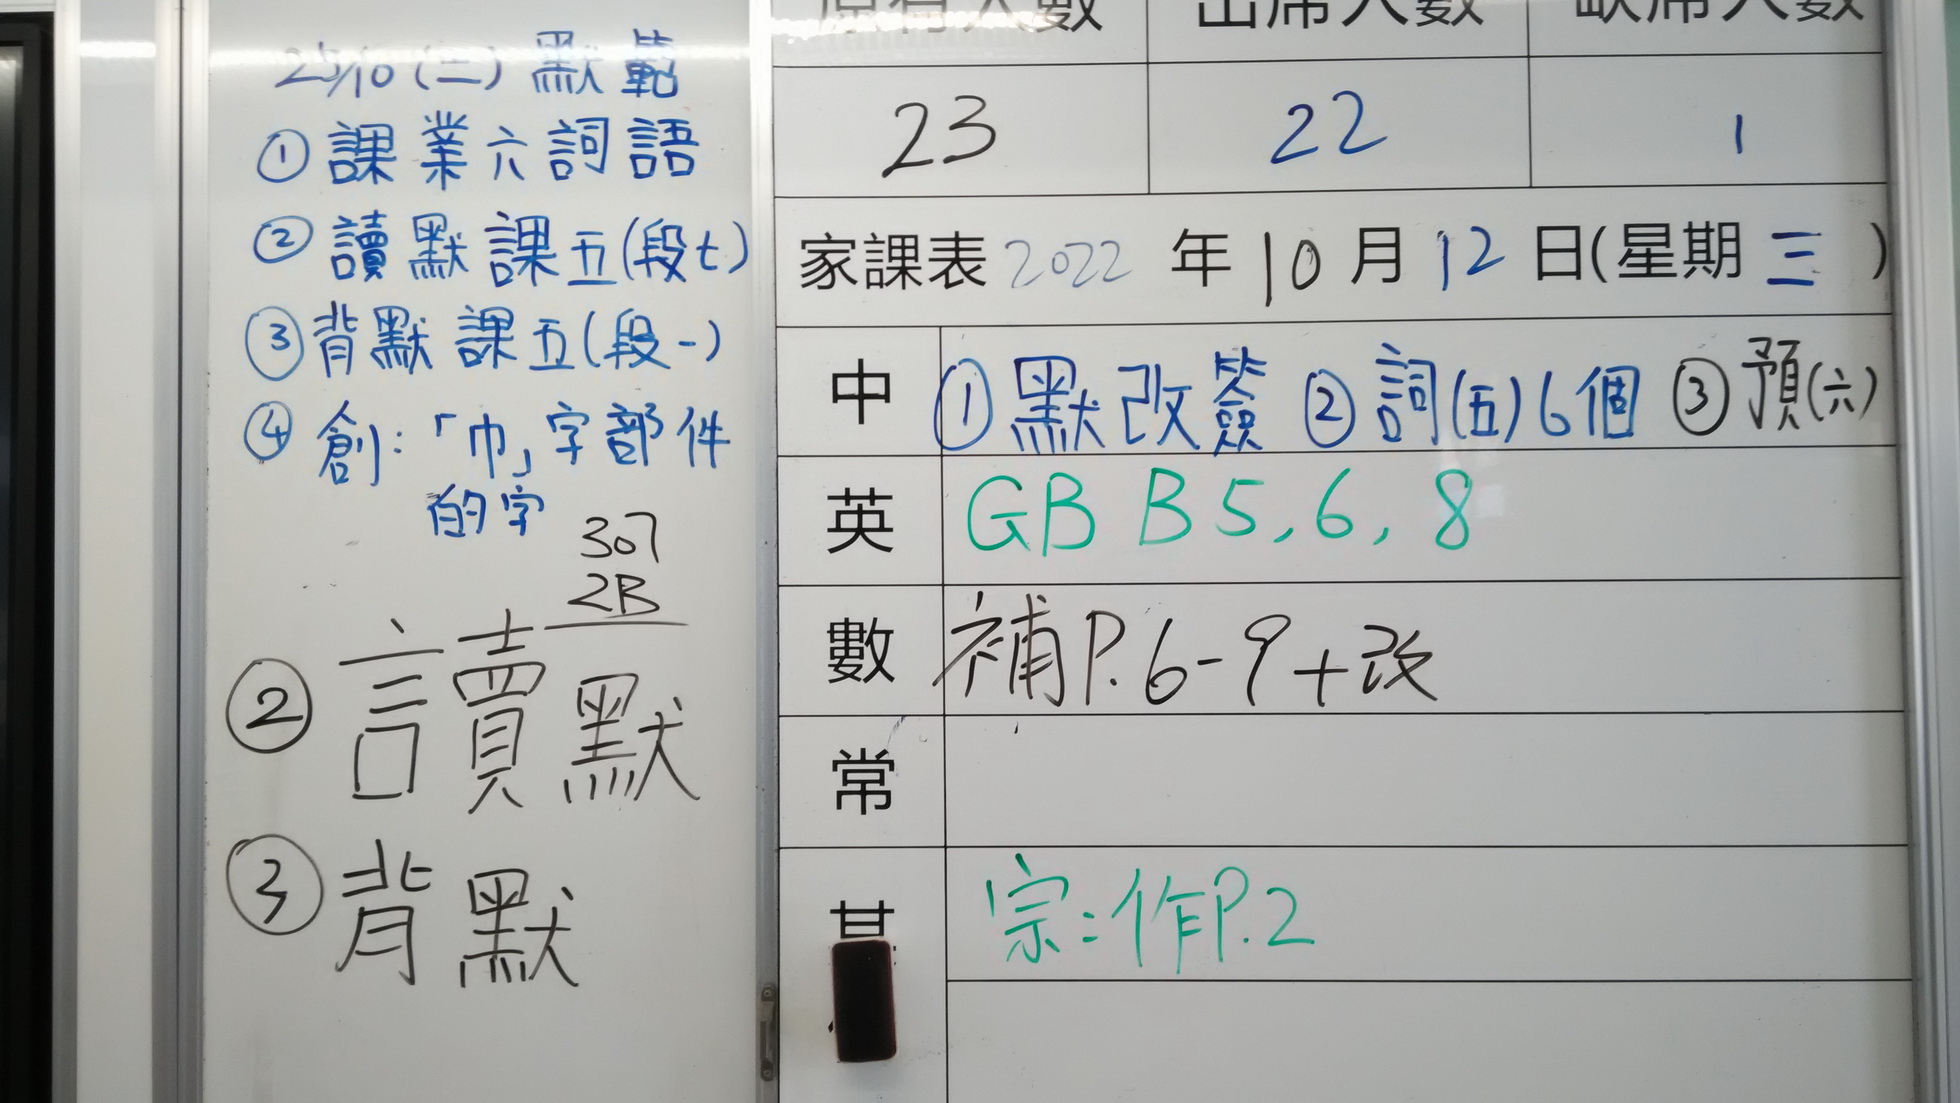 25/10 (二) 默範
① 課業六詞語
② 讀默課五(段七)
③ 背默課五(段一)
④ 創:「巾」字部件
的字
307
2B
② 讀默
③ 背默
原有人數 出席人數 缺席人數
23 22 1
家課表 2022 年 10 月 12 日(星期 三 )
中 ① 默改簽 ② 詞(五)6個 ③ 預(六)
英 GB B5, 6, 8
數 補P.6-9+改
常
其
宗:作P.2